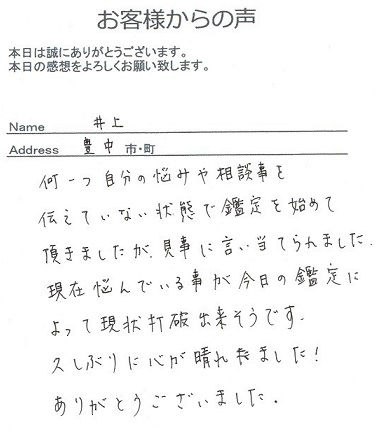 お客様からの声
本日は誠にありがとうございます。
本日の感想をよろしくお願い致します。
Name 井上
Address 豊中 市・町
何一つ自分の悩みや相談事を
伝えていない状態で鑑定を始めて
頂きましたが、見事に言い当てられました。
現在悩んでいる事が今日の鑑定に
よって現状打破出来そうです。
久しぶりに心が晴れました!
ありがとうございました。